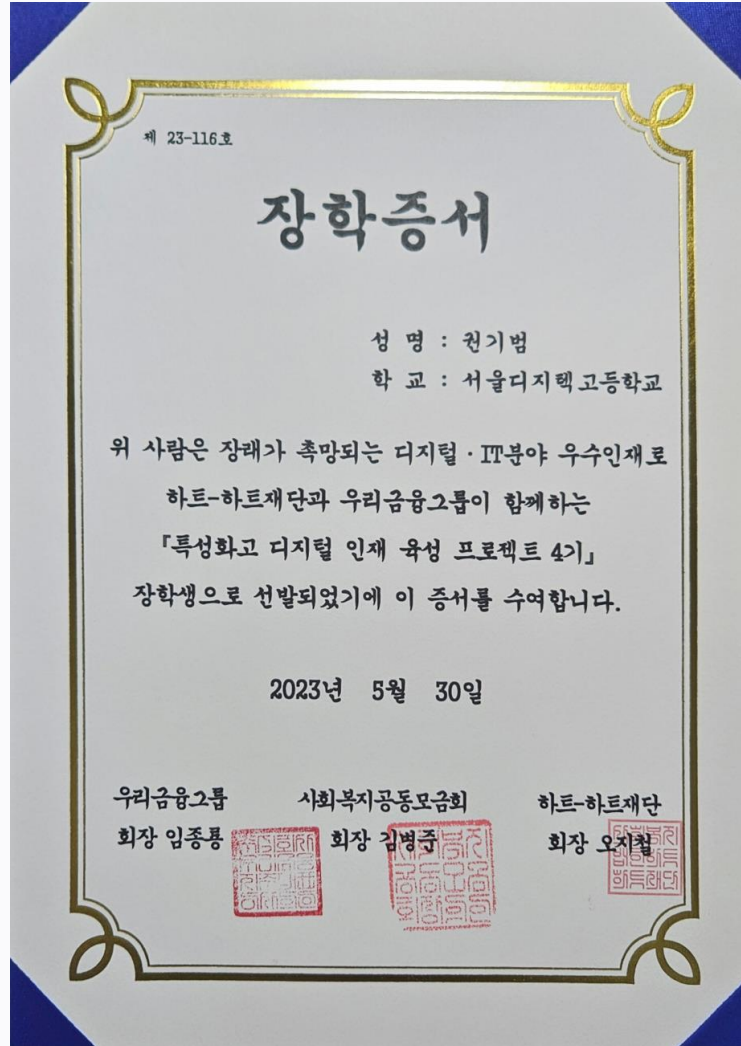 제 23-116호
장학증서
성 명 : 권기범
학 교 : 서울디지텍고등학교
위 사람은 장래가 촉망되는 디지털·IT분야 우수인재로
하트-하트재단과 우리금융그룹이 함께하는
『특성화고 디지털 인재 육성 프로젝트 4기』
장학생으로 선발되었기에 이 증서를 수여합니다.
2023년 5월 30일
우리금융그룹 사회복지공동모금회 하트-하트재단
회장 임종룡 회장 김병준 회장 오지철